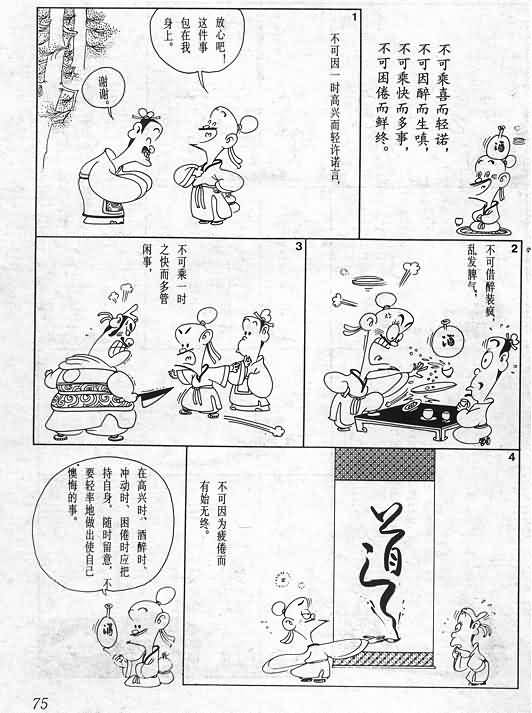 不可乘喜而轻诺，
不可因醉而生嗔，
不可乘快而多事，
不可因倦而鲜终。
酒
1
不可因一时高兴而轻许诺言，
放心吧！
这件事
包在我
身上。
谢谢。
2
不可借醉装疯，
乱发脾气；
酒
3
不可乘一时
之快而多管
闲事，
4
不可因为疲倦而
有始无终。
道
在高兴时、酒醉时、
冲动时、困倦时应把
持自身，随时留意，不
要轻率地做出使自己
懊悔的事。
酒
75